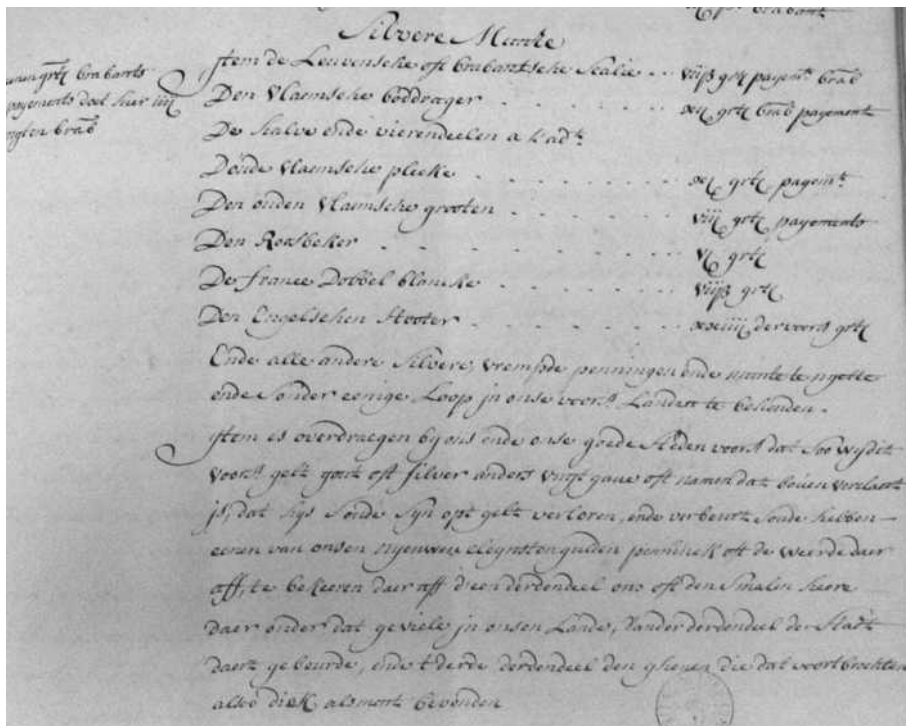 brabant
Silvere Munte
Item de Leuvensche oft brabantsche Scalie . . . viijß grt payemts brab
grt brabants
payements doet hier iiij
brab
Den Vlaemsche boddrager - - - - xij grt brab payement
De halve ende vierendeelen
Doude Vlaemsche plecke - - - - grt payemts
Den ouden Vlaemsche grooten - - - - viij grt payements
Den Roesbeker - - - - grt
De france Dobbel blancke - - - - viijß grt
Den Engelschen Stooter - - - - xxiiij der voors grt
Ende alle andere Silvere, vremde penningen ende munte te nyette
ende Sonder eenige Loop in onse voors Landen te
Item es overdraegen by ons ende onse goede Steden voors dat Soo wy dit
voors gelt gout oft silver anders gave oft namen dat boven
is, dat hys Soude Syn opt gelt verloren, ende verbeurt Soude hebben
eenen van onsen nyeuwen penninck oft de weerde daer
aff, te bekeeren daer aff d'een derdendeel ons oft den Smalen heere
daer onder dat geviele in onsen Lande, dander derdendeel der Stadt
daert gebeurde, ende t'derde derdendeel den ghenen die dat voort brochten
alsoo dick alsment bevonden